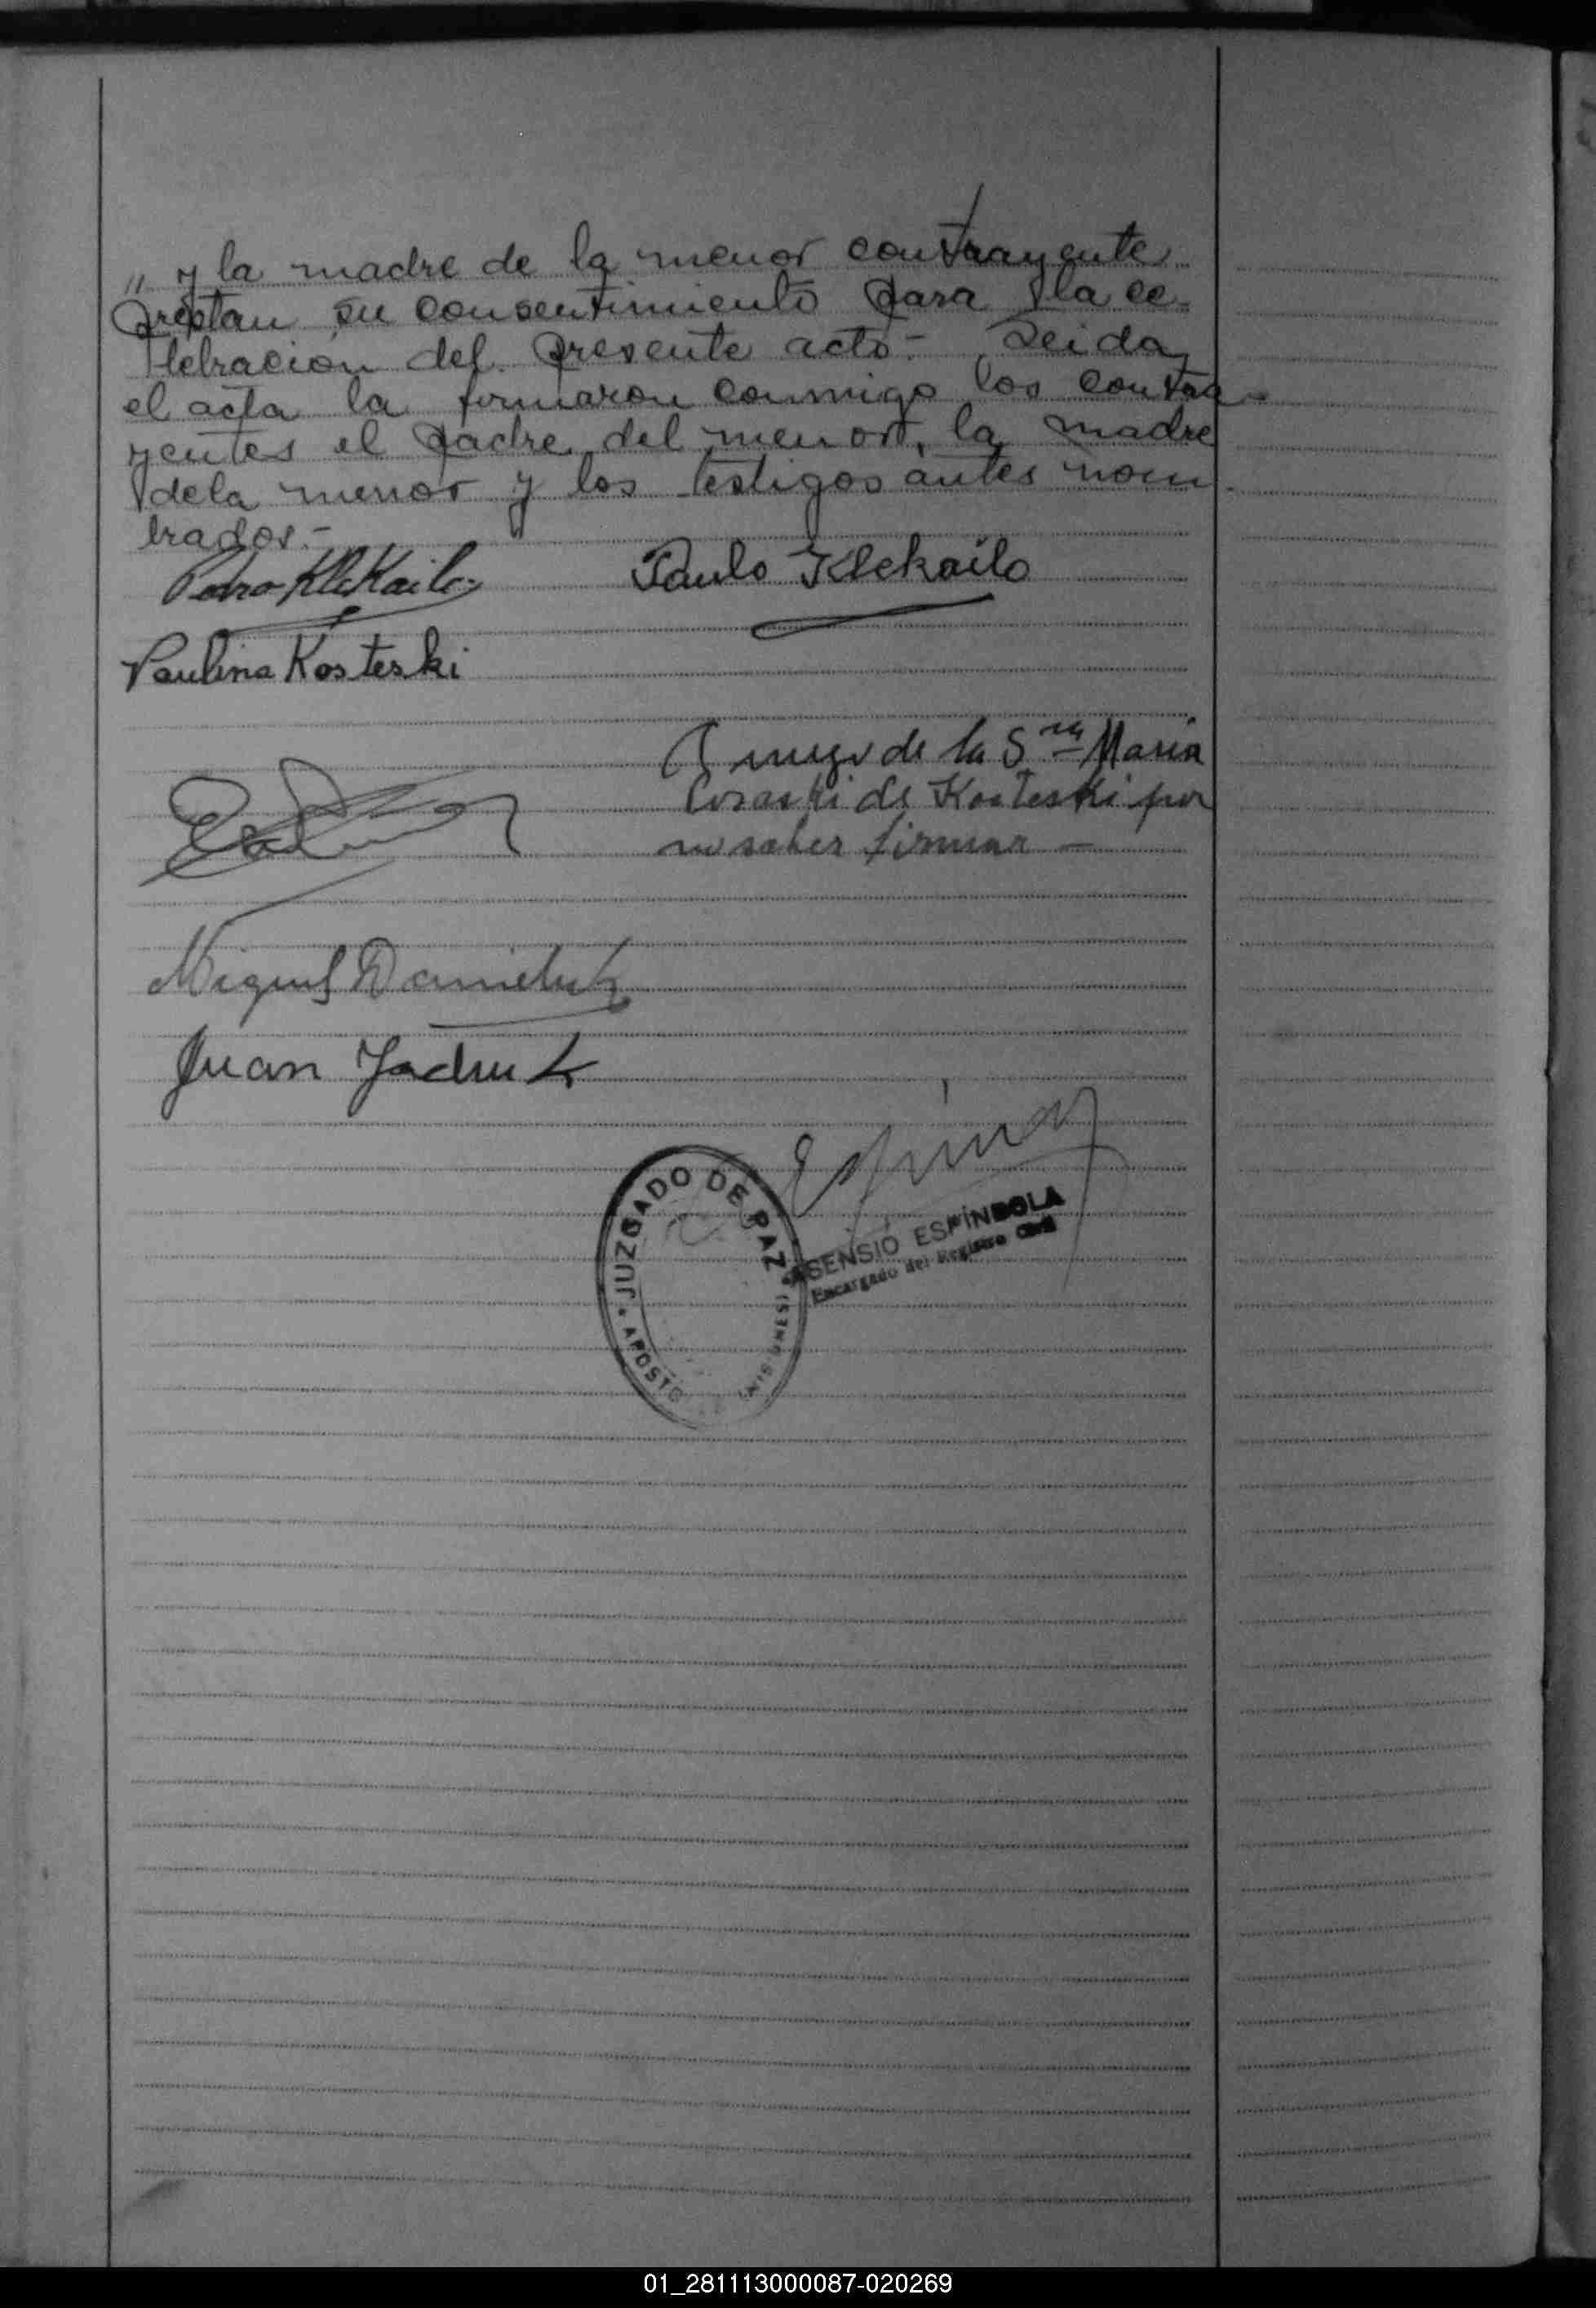 ,, y la madre de la menor contrayente
prestan su consentimiento para la ce-
lebración del presente acto.- Leida
el acta la firmaron conmigo los contra-
yentes el padre del menor, la madre
de la menor y los testigos antes nom
brados.-
Pedro Klekailo
Paulo Klekailo
Paulina Kosteski
A ruego de la Sra Maria
de Kosteski por
no saber firmar -
Miguel Danieluk
Juan
JUZGADO DE PAZ
APOSTO
ASENSIO ESPÍNDOLA
Encargado del Registro Civil
01_281113000087-020269